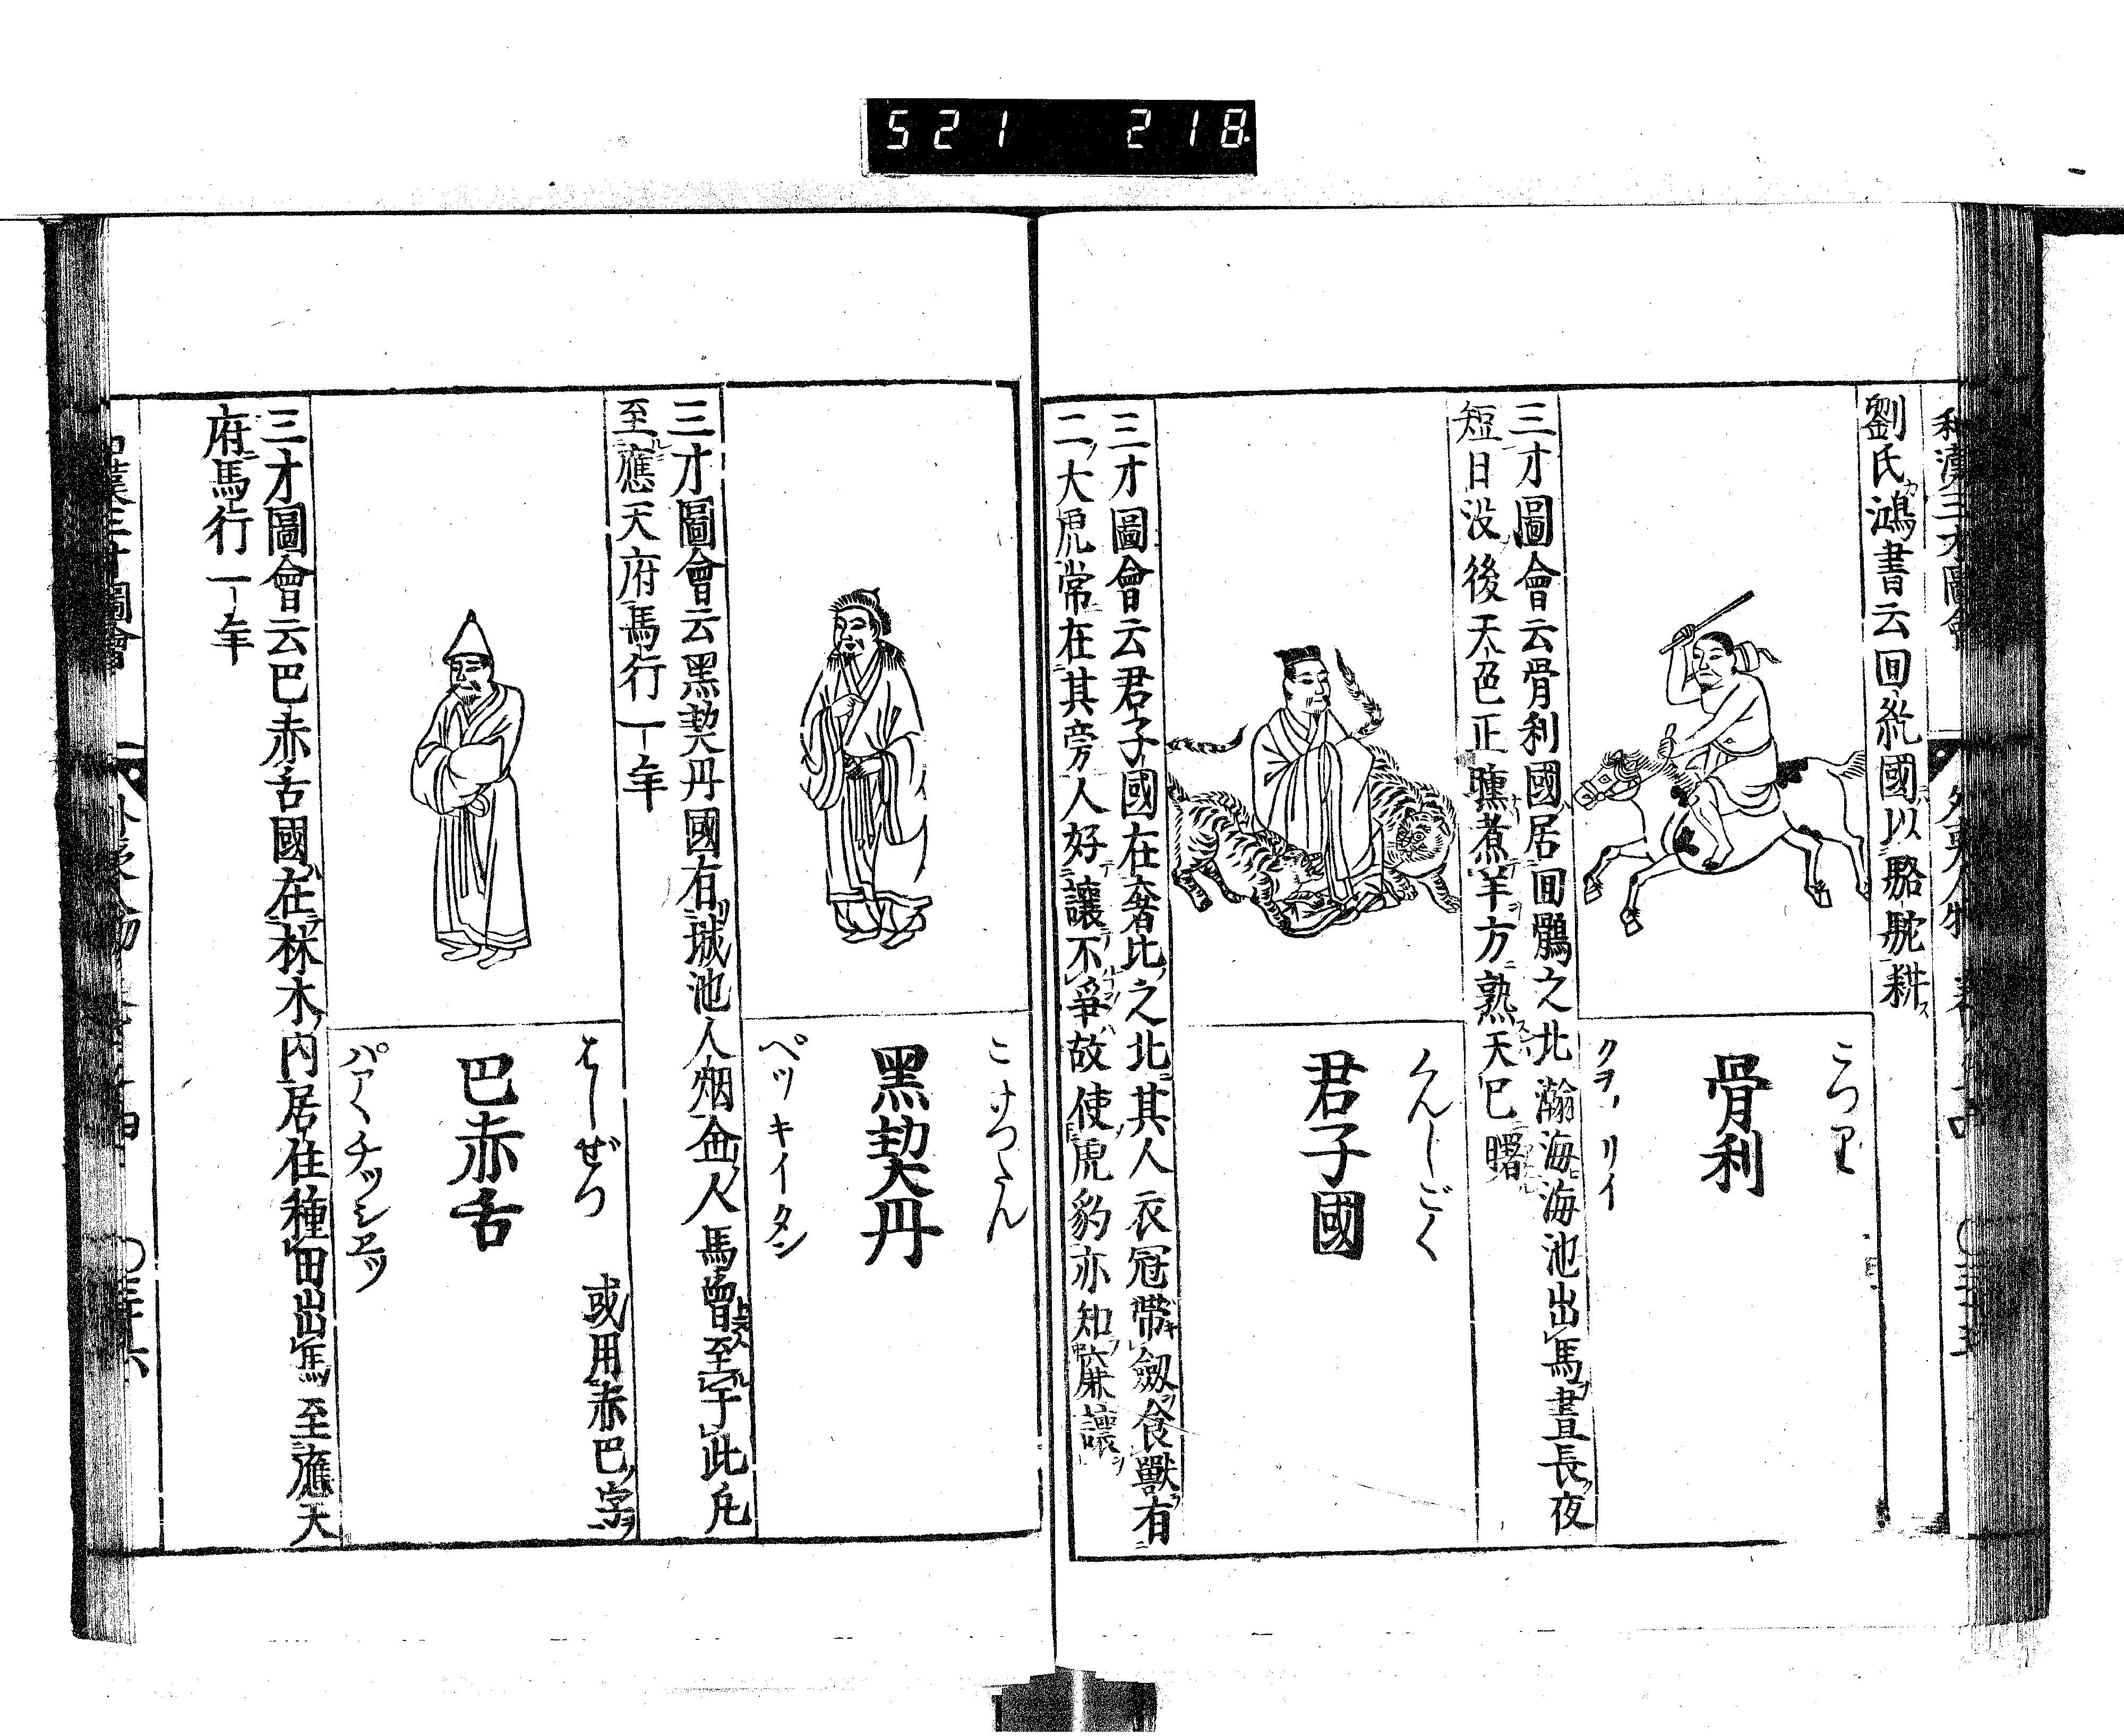 521 218
和漢三才圖會
外夷人物
劉氏鴻書云回紇國以駱駝耕
こつり
骨利
クヲ リイ
三才圖會云骨利國居回鶻之北瀚海海池出馬晝長夜
短日没後天色正曛煮羊方熟天巳曙
くんしごく
君子國
三才圖會云君子國在奢比之北其人衣冠帶劔食獸有
二大虎常在其旁人好讓不爭故使虎豹亦知廉讓
こけつたん
黑契丹
ペッキイタン
三才圖會云黑契丹國有城池人烟金人馬曽至于此凢
至應天府馬行一年
はしぜつ
或用赤巴字
巴赤舌
パアヽチッシエッ
三才圖會云巴赤舌國在林木内居住種田出馬至應天
府馬行一年
和漢三才圖會